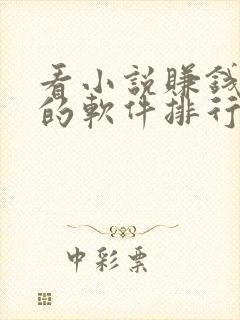 看小説賺錢
的軟件排行
中彩票